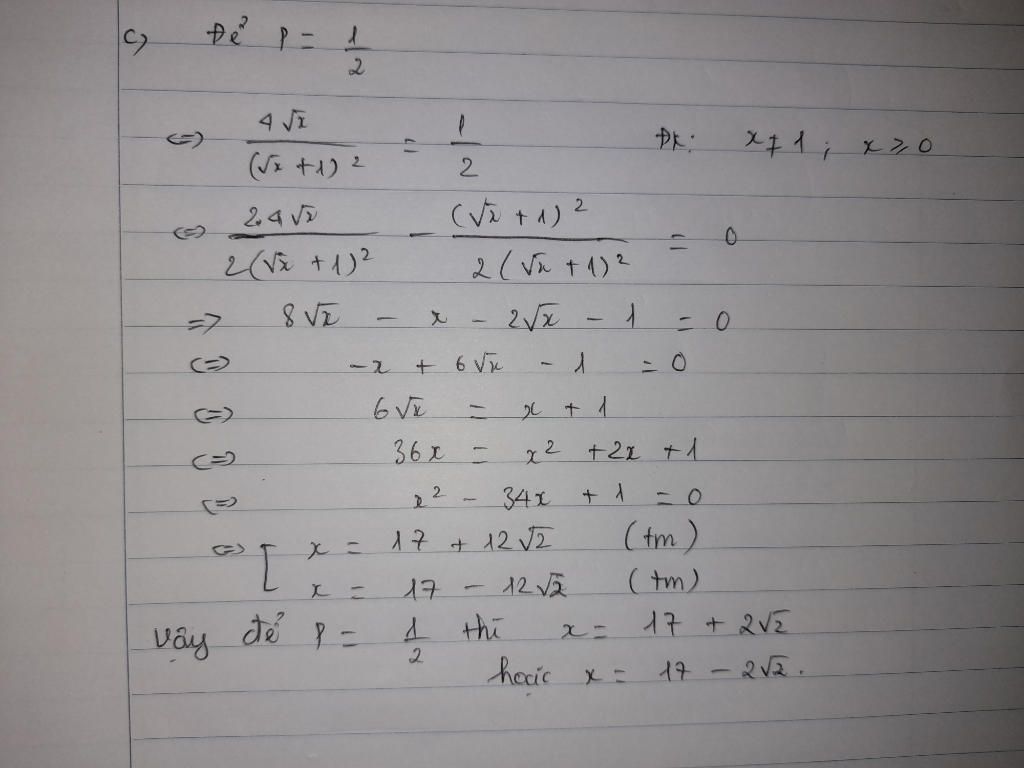 c) Để P = 1/2
<=> 4√x / (√x + 1)² = 1/2 ĐK: x ≠ 1 ; x ≥ 0
<=> 2.4√x / 2(√x + 1)² - (√x + 1)² / 2(√x + 1)² = 0
=> 8√x - x - 2√x - 1 = 0
<=> -x + 6√x - 1 = 0
<=> 6√x = x + 1
<=> 36x = x² + 2x + 1
<=> x² - 34x + 1 = 0
<=> [ x = 17 + 12√2 (tm)
x = 17 - 12√2 (tm)
Vậy để P = 1/2 thì x = 17 + 2√2
hoặc x = 17 - 2√2.